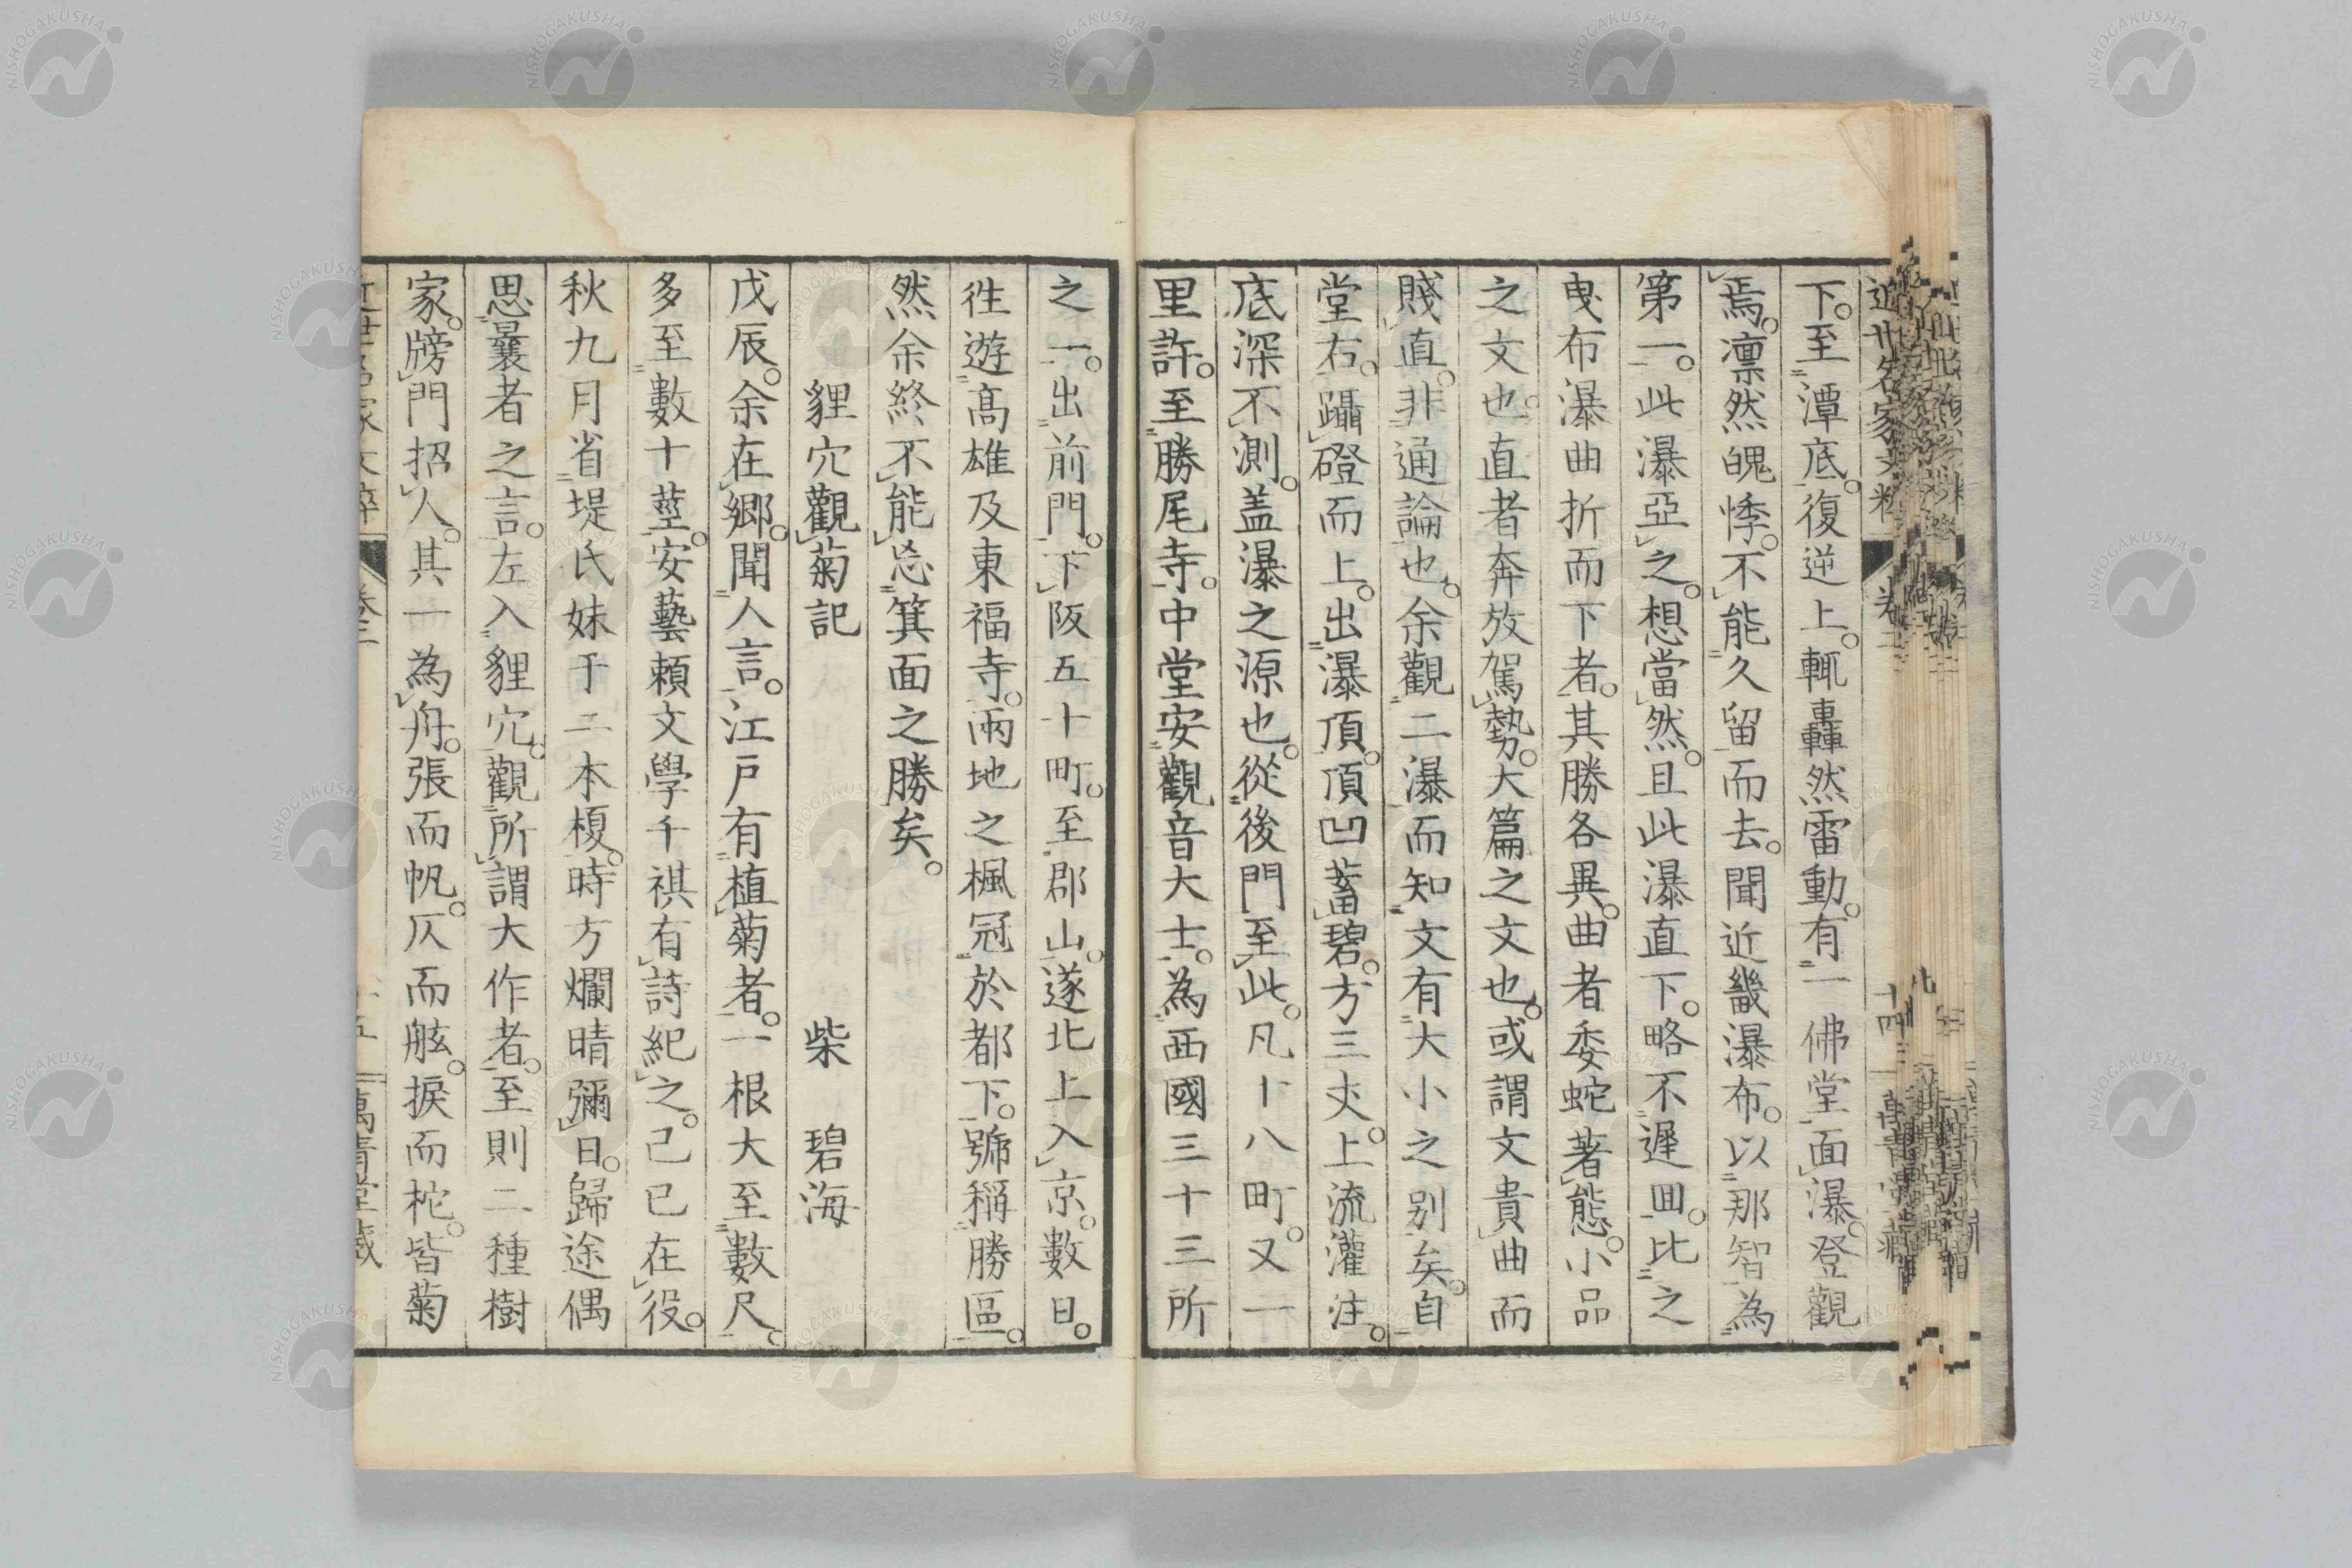 近世名家文粹 卷二 十四
下。至潭底。復逆上。輒轟然雷動。有一佛堂面瀑。登觀
焉。凛然魄悸。不能久留而去。聞近畿瀑布。以那智為
第一。此瀑亞之。想當然。且此瀑直下。略不遲回。比之
曳布瀑曲折而下者。其勝各異。曲者委蛇著態。小品
之文也。直者奔放駕勢。大篇之文也。或謂文貴曲而
賤直。非通論也。余觀二瀑而知文有大小之别矣。自
堂右。躡磴而上。出瀑頂。頂凹蓄碧。方三丈。上流灌注。
底深不測。盖瀑之源也。從後門至此。凡十八町。又一
里許。至勝尾寺。中堂安觀音大士。為西國三十三所
之一。出前門。下阪五十町。至郡山。遂北上入京。數日。
徃遊高雄及東福寺。兩地之楓冠於都下。號稱勝區。
然余終不能忘箕面之勝矣。
貍穴觀菊記 柴碧海
戊辰。余在鄉。聞人言。江戸有植菊者。一根大至數尺。
多至數十莖。安藝頼文學千祺有詩紀之。己巳在役。
秋九月省堤氏妹于二本榎。時方爛晴彌日。歸途偶
思曩者之言。左入貍穴。觀所謂大作者。至則二種樹
家。牓門招人。其一為舟。張而帆。仄而舷。捩而柁。皆菊
近世名家文粹 卷二 十五 萬青堂藏